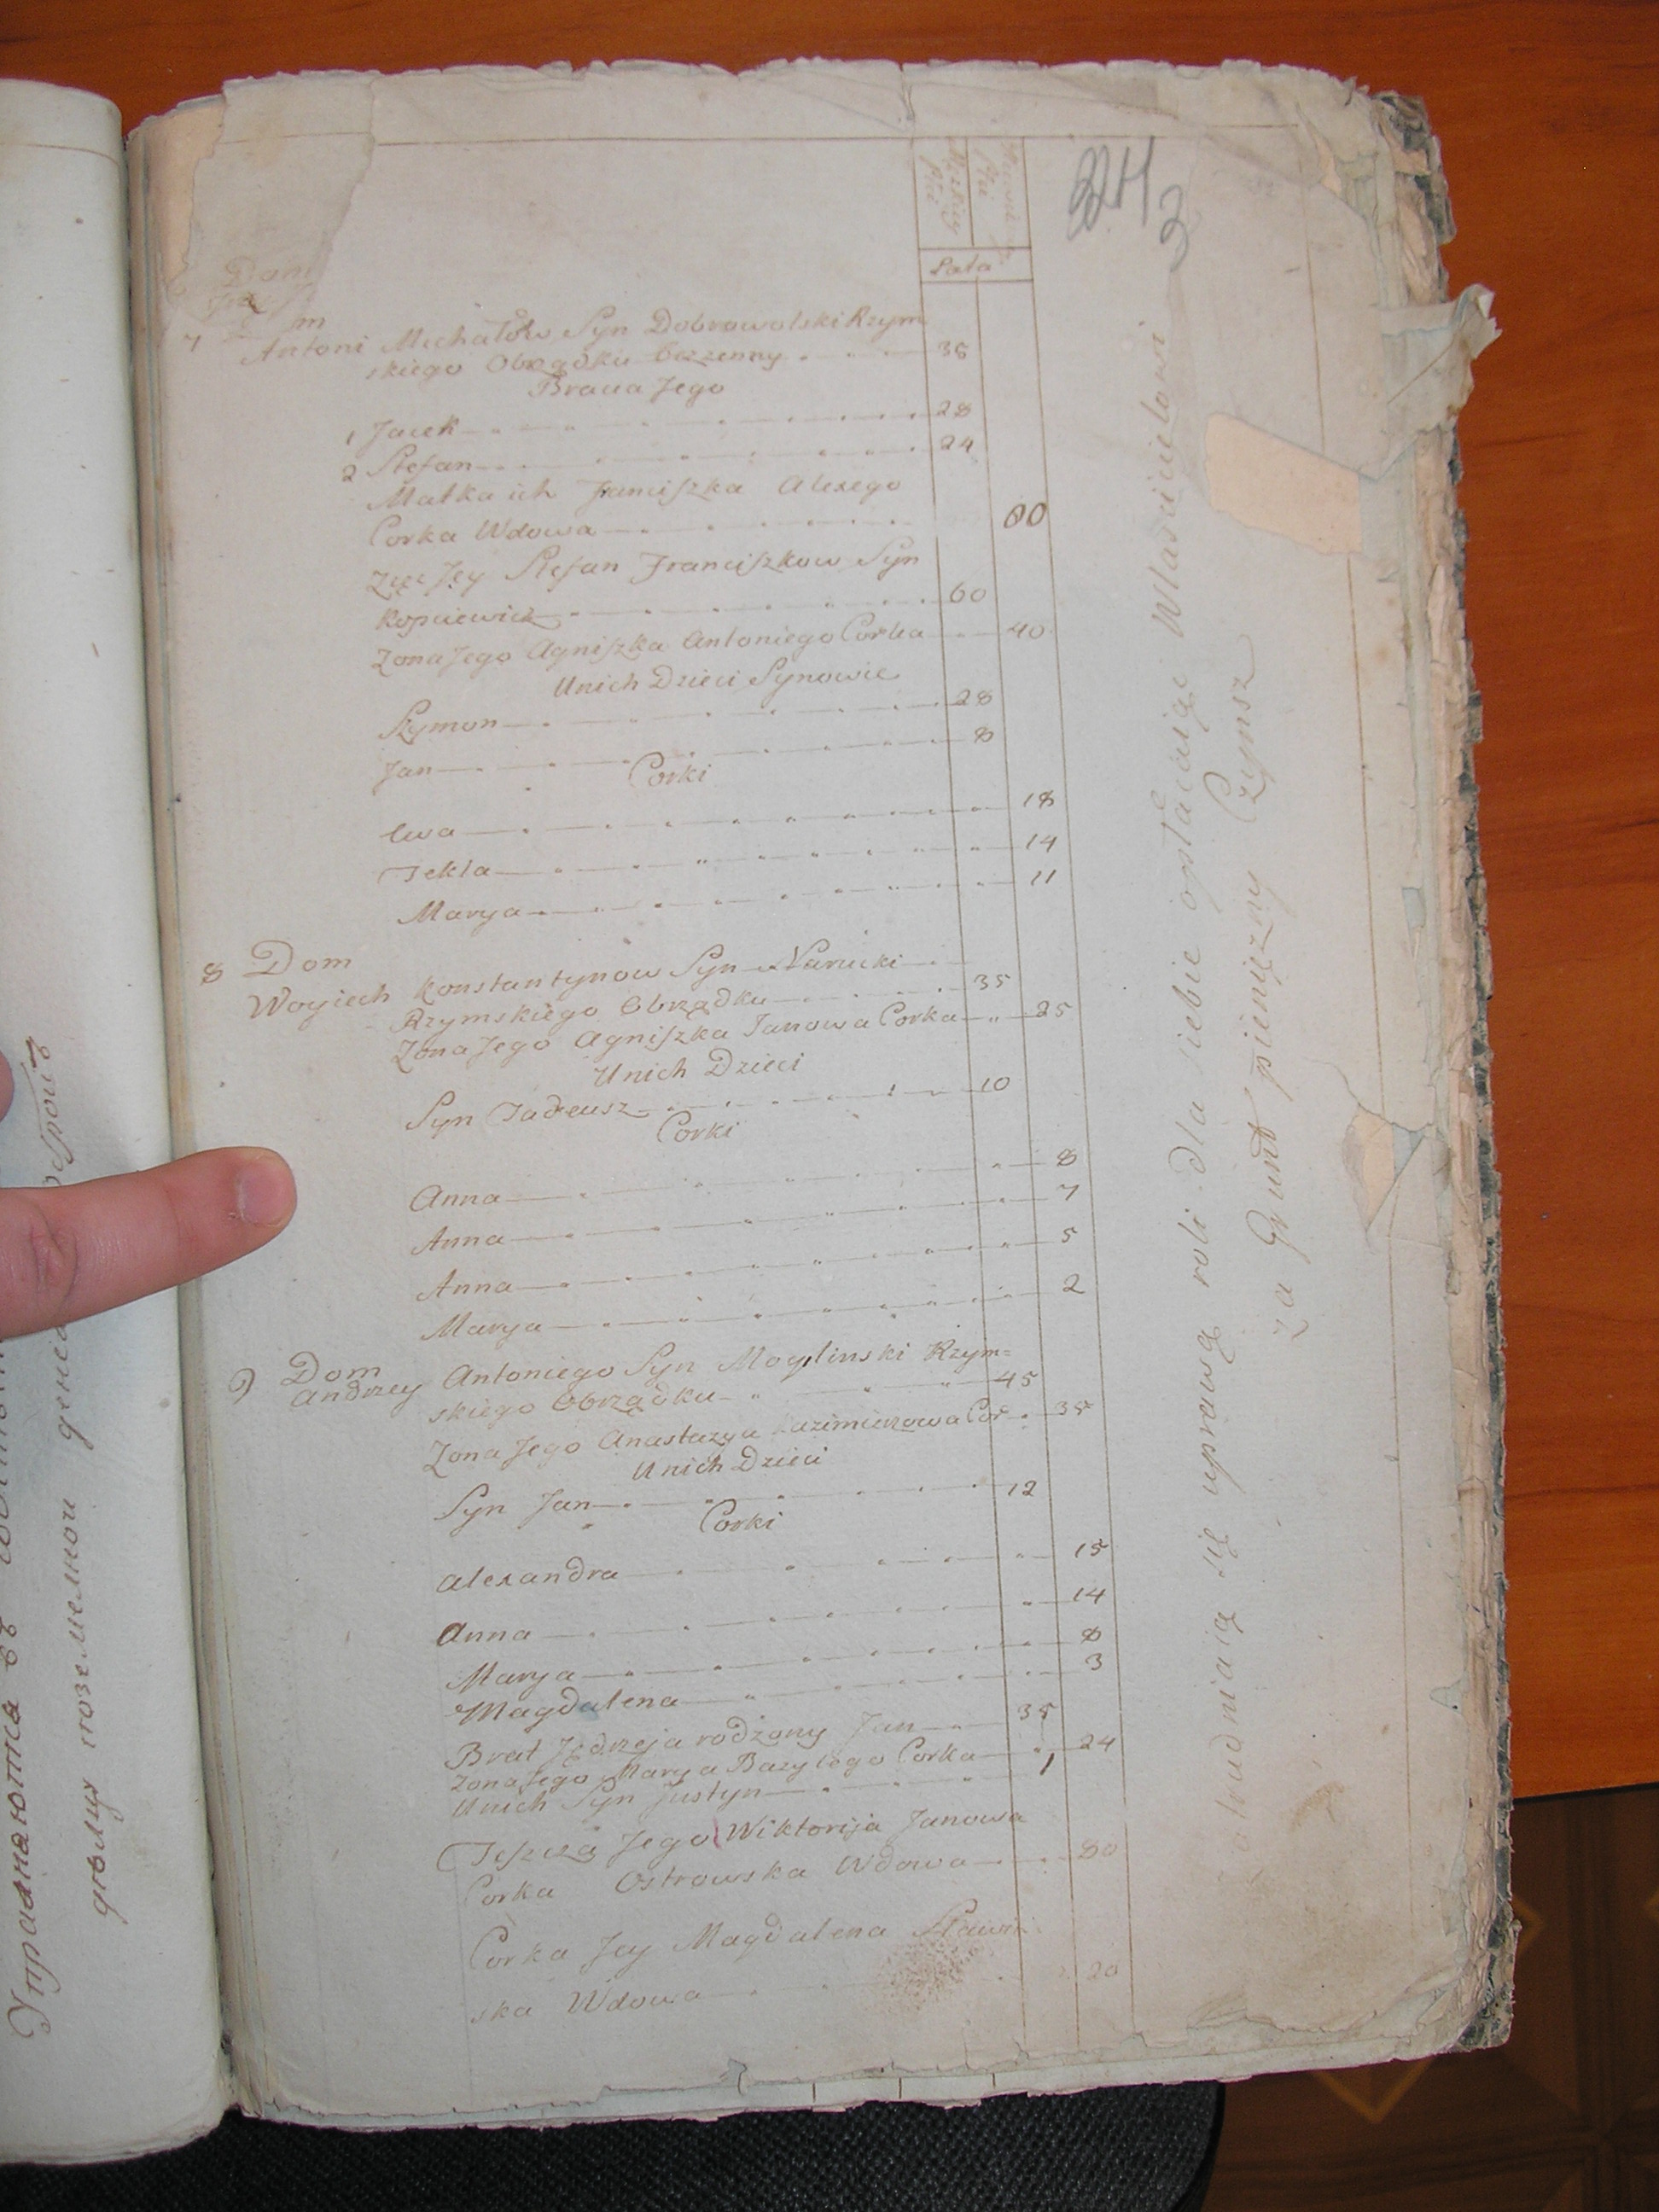 Męzkiey Płci
Płci
Lata
224
3
Dom
7 Antoni Michałów Syn Dobrowolski Rzym
skiego Obrządku bezżenny 36
Bracia Jego
1 Jacek 28
2 Stefan 24
Matka ich Franciszka Alexego
Corka Wdowa 80
Zięć Jey Stefan Franciszkow Syn
Kopciewicz 60
Zona Jego Agniszka Antoniego Corka 40
Unich Dzieci Synowie
Szymon 28
Jan 8
Corki
Ewa 18
Tekla 14
Marya 11
8 Dom
Woyiech Konstantynow Syn Narucki
Rzymskiego Obrządku 35
Zona Jego Agniszka Janowa Corka 25
Unich Dzieci
Syn Tadeusz 10
Corki
Anna 8
Anna 7
Anna 5
Marya 2
9 Dom
Andrzey Antoniego Syn Moylinski Rzym=
skiego Obrządku 45
Zona Jego Anastazya Kazimierzowa Cor 35
Unich Dzieci
Syn Jan 12
Corki
Alexandra 15
Anna 14
Marya 8
Magdalena 3
Brat Jędrzeja rodzony Jan 35
Zona Jego Marya Bazylego Corka 24
Unich Syn Justyn 1
Teszcza Jego Wiktorija Janowa
Corka Ostrowska Wdowa 80
Corka Jey Magdalena
ska Wdowa 20
Zatrudniaią się uprawą roli dla siebie opłacaiąc Właścicielowi
za Grunt pieniężny Czynsz
Упражняются въ
землю денежной оброкъ